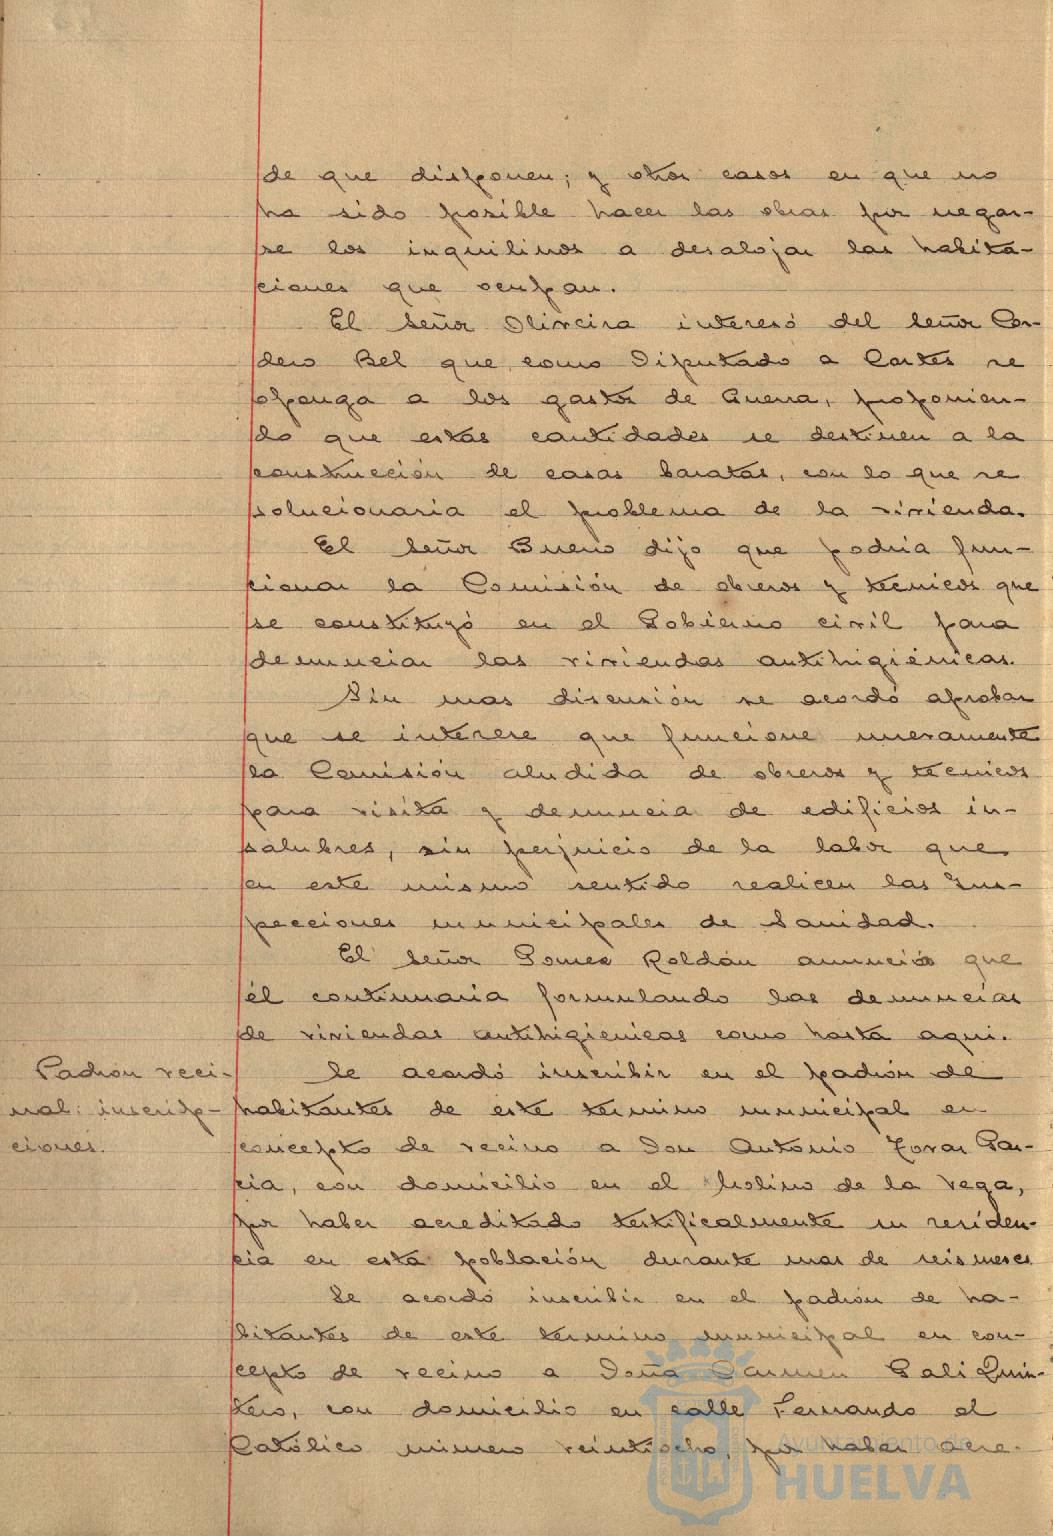 de que disponen; y otros casos en que no
ha sido posible hacer las obras por negar-
se los inquilinos a desalojar las habita-
ciones que ocupan.
El Señor Oliveira interesó del Señor Cor-
dero Bel que como Diputado a Cortes se
oponga a los gastos de Guerra, proponien-
do que estas cantidades se destinen a la
construcción de casas baratas, con lo que se
solucionaria el problema de la vivienda.
El Señor Bueno dijo que podria fun-
cionar la Comisión de obreros y técnicos que
se constituyó en el Gobierno civil para
denunciar las viviendas antihigiénicas.
Sin mas discusión se acordó aprobar
que se interese que funcione nuevamente
la Comisión aludida de obreros y tecnicos
para visita y denuncia de edificios in-
salubres, sin perjuicio de la labor que
en este mismo sentido realicen las Ins-
pecciones municipales de Sanidad.
El Señor Gomez Roldán anunció que
él continuaria formulando las denuncias
de viviendas antihigienicas como hasta aqui.
Padron veci-
nal: inscrip-
ciones.
Se acordó inscribir en el padrón de
habitantes de este termino municipal en
concepto de vecino a Don Antonio Tovar Gar-
cia, con domicilio en el Molino de la Vega,
por haber acreditado testificalmente su residen-
cia en esta población durante mas de seis meses
Se acordó inscribir en el padrón de ha-
bitantes de este termino municipal en con-
cepto de vecino a Doña Carmen Gali Quin-
tero, con domicilio en calle Fernando el
Católico número veintiocho, por haber acre-
Ayuntamiento de
HUELVA